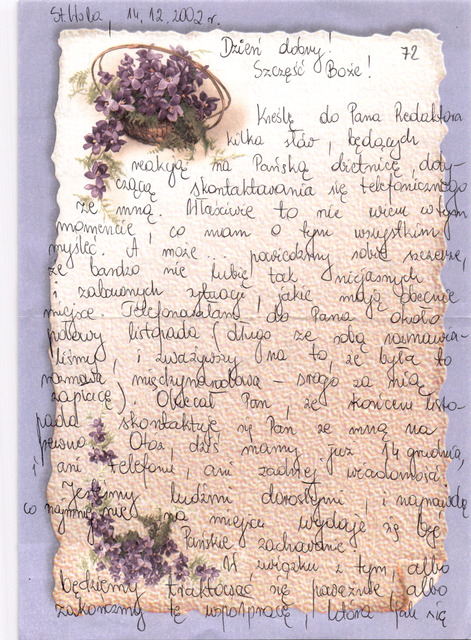 St. Wola, 14.12.2002 r.
72
Dzień dobry!
Szczęść Boże!
Kreślę do Pana Redaktora
kilka słów, będących
reakcją na Pańską obietnicę, doty-
czącą skontaktowania się telefonicznego
ze mną. Właściwie to nie wiem w tym
momencie, co mam o tym wszystkim
myśleć. A może... powiedzmy sobie szczerze,
że bardzo nie lubię tak niejasnych
i zabawnych sytuacji, jakie mają obecnie
miejsce. Telefonowałam do Pana około
połowy listopada (długo ze sobą rozmawia-
liśmy, i zważywszy na to, że była to
rozmowa międzynarodowa – srogo za nią
zapłacę). Obiecał Pan, że końcem listo-
pada skontaktuje się Pan ze mną na
pewno. Otóż, dziś mamy już 14 grudnia,
i ani telefonu, ani żadnej wiadomości.
Jesteśmy ludźmi dorosłymi, i naprawdę
co najmniej nie na miejscu wydaje się być
Pańskie zachowanie.
W związku z tym, albo
będziemy traktować się poważnie, albo
zakończmy tę współpracę, która jak się